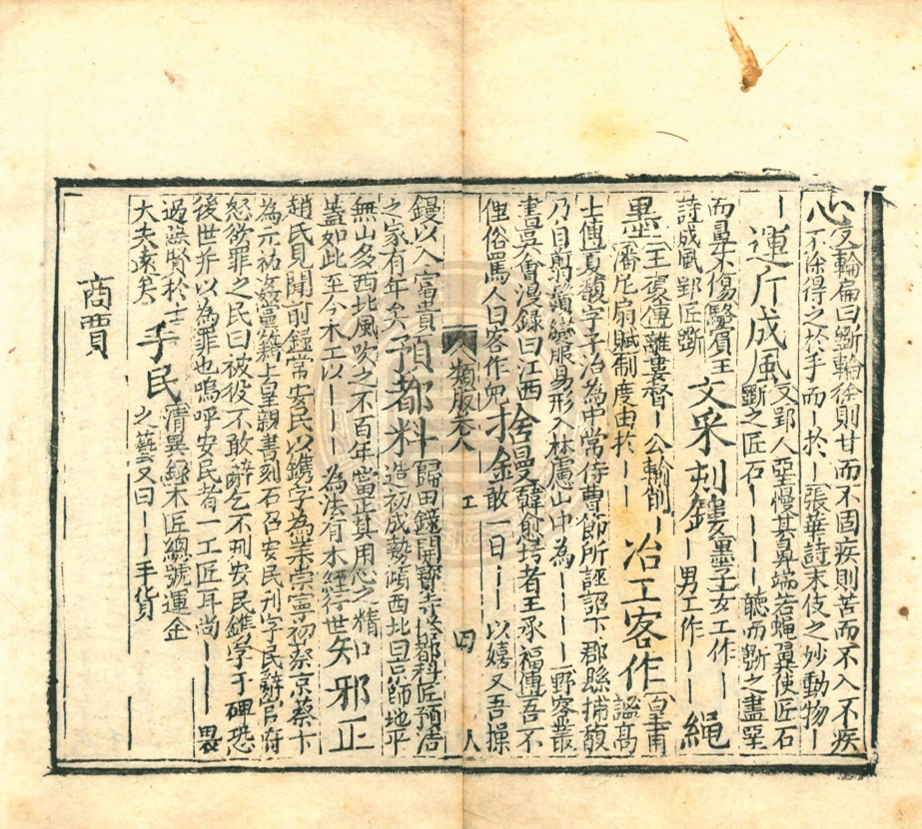 心文輪扁曰斲輪徐則甘而不固疾則苦而不入不疾
不徐得之於手而｜於｜張華詩末伎之妙動物｜
｜運斤成風文郢人堊慢其鼻端若蝇翼使匠石
斲之匠石｜｜｜｜聽而斲之盡堊
而鼻不傷駱賔王
詩成風郢匠斲
文采刻鏤墨子女工作｜｜
｜｜男工作｜｜
繩
墨｜王褒傳離婁督｜公輸削｜
潘尼扇賦制度由於｜｜
冶工客作｜皇甫
謐高
士傳夏馥字子治為中常侍曹節所誣詔下郡縣捕馥
乃自翦鬚變服易形入林慮山中為｜｜｜野客叢
書吳曾漫録曰江西
俚俗罵人曰客作兒
捨鏝韓愈圬者王承福傳吾不
敢一日｜｜以嬉又吾操
類腋卷八 工 四 人
鏝以入富貴
之家有年矣
預都料歸田録開寳寺塔都料匠預浩
造初成勢傾西北曰吾師地平
無山多西北風吹之不百年當正其用心之精
蓋如此至今木工以｜｜｜為法有木經行世
知邪正
趙氏見聞前録常安民以鐫字為業崇寧初蔡京蔡卞
為元祐姦黨籍上皇親書刻石召安民刊字民辭官府
怒欲罪之民曰被役不敢辭乞不刊安民鐫字于碑恐
後世并以為罪也嗚呼安民者一工匠耳尚｜｜畏
過譏賢於士
大夫遠矣
手民清異録木匠總號運金
之藝又曰｜｜手貨
商賈